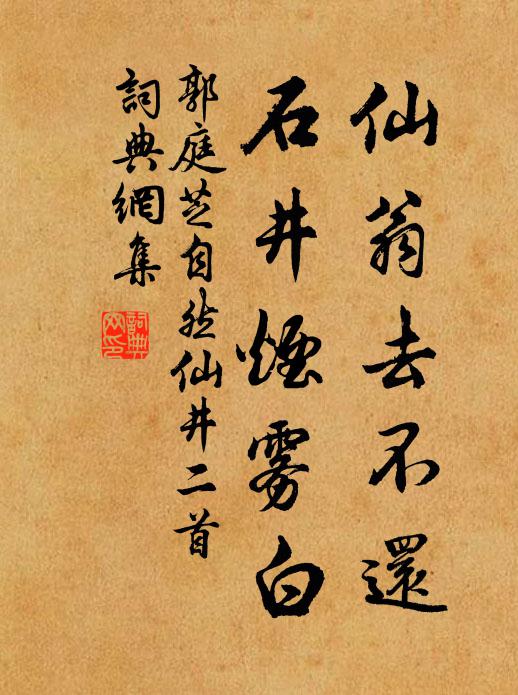 仙翁去不還
石井煙雾白
郭庭芝自然仙井二首
詞典網集
詞典網印